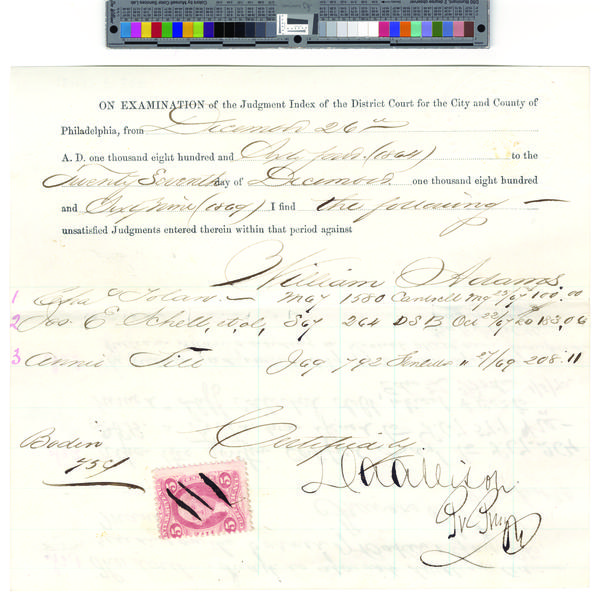 ON EXAMINATION of the Judgment Index of the District Court for the City and County of
Philadelphia, from December 26th
A. D. one thousand eight hundred and Sixty four (1864) to the
Twenty Seventh day of December one thousand eight hundred
and Sixty nine (1869) I find the following
unsatisfied Judgments entered therein within that period against
William Adams
1 Tolan M67 1580 Cantrell My 23/67 100.00
2 Jos. E Schell, et al, S67 264 DSB Oct 22/67 20183.06
3 Annie Till J69 792 " 27/69 208.11
Boden
459
Certified by
D Allison
5 5
5 5